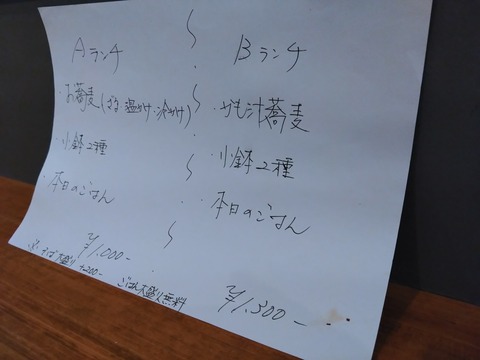 Aランチ
・お蕎麦(ざる・温かけ・冷かけ)
・小鉢2種
・本日のごはん
¥1,000-
※そば大盛り +200- ごはん大盛り無料
Bランチ
・かも汁蕎麦
・小鉢2種
・本日のごはん
¥1,300-